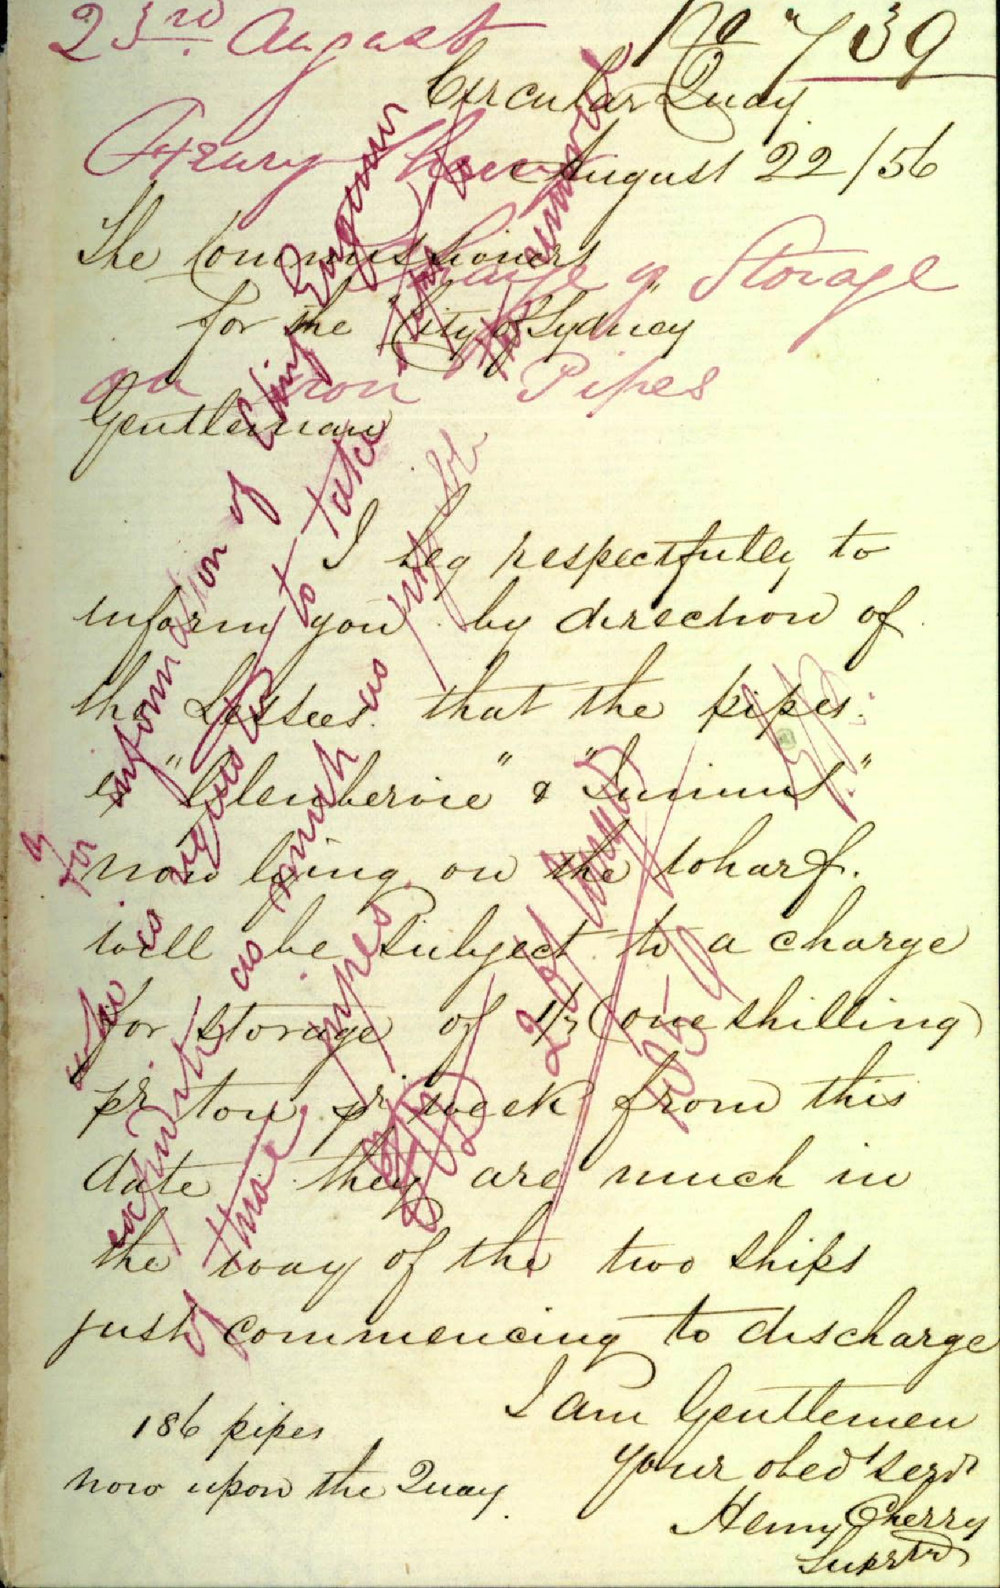 23rd August
No 739
Circular Quay
August 22/56
Henry Cherry
The Commissioners
Charge of Storage
for the "City of Sydney"
on iron Pipes
Gentleman
I beg respectfully to
inform you by direction of
the Lessees that the pipes
ex "Glenbervie" & "
now lying on the wharf.
will be subject to a charge
for storage of 1/- (one shilling)
pr ton pr week from this
date they are much in
the way of the two ships
just commencing to discharge
I am Gentlemen
your obed't servt
Henry Cherry
Suprtd
186 pipes
now upon the Quay.
For information of City Engineer
who is requested to take
expedite as much as
of those pipes
the removal